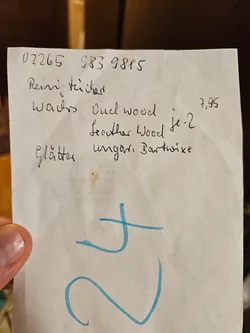 02265 983 9815
Reinig. tücher
Wachs Oud wood je. 2 7,95
Leather Wood
Glätter ungar. Bartwixe
24